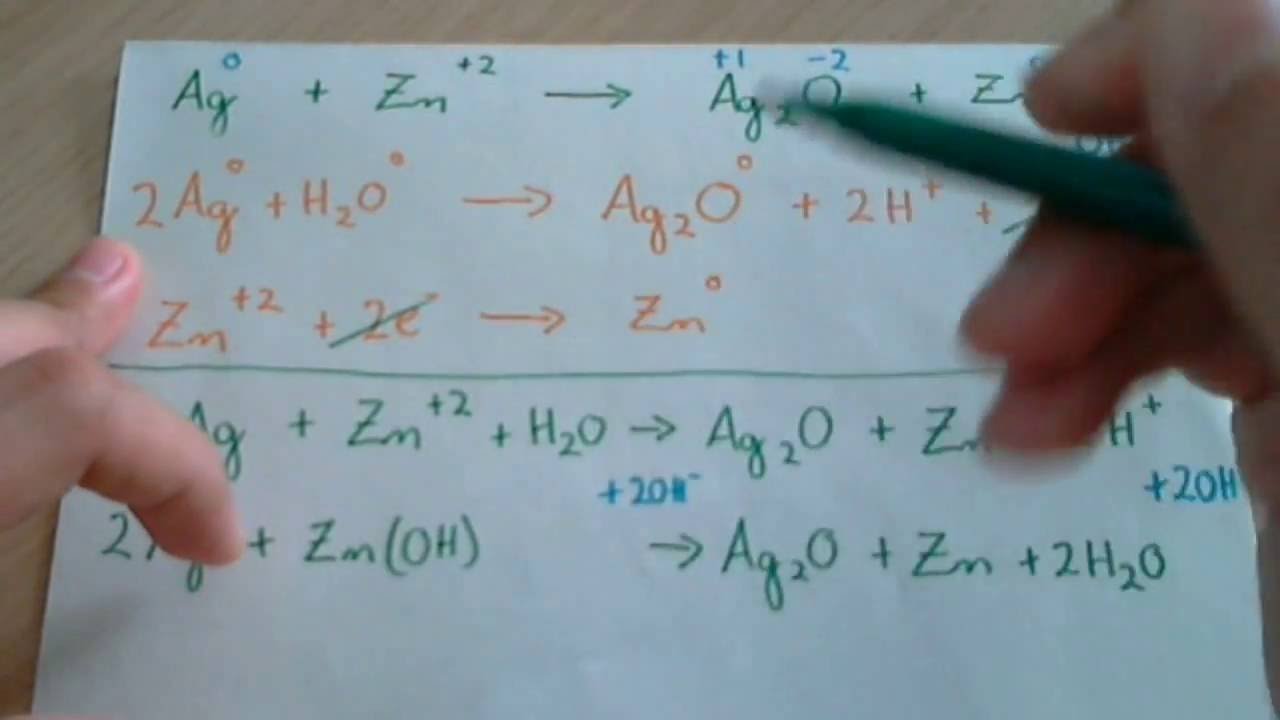 Ag⁰ + Zn⁺² → Ag₂O + Z
+1 -2
2Ag⁰ + H₂O⁰ → Ag₂O⁰ + 2H⁺ +
Zn⁺² + 2e⁻ → Zn⁰
Ag + Zn⁺² + H₂O → Ag₂O + Zn H⁺
+2OH⁻ +2OH
2Ag + Zn(OH) → Ag₂O + Zn + 2H₂O